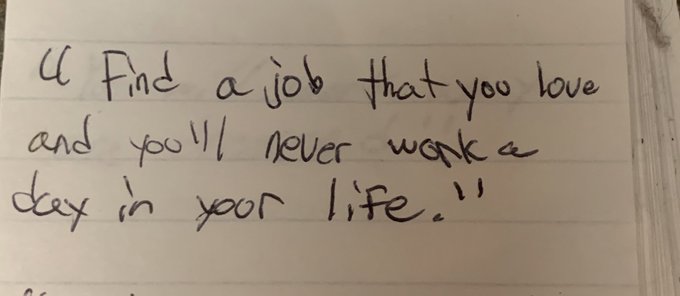 “Find a job that you love
and you'll never work a
day in your life."